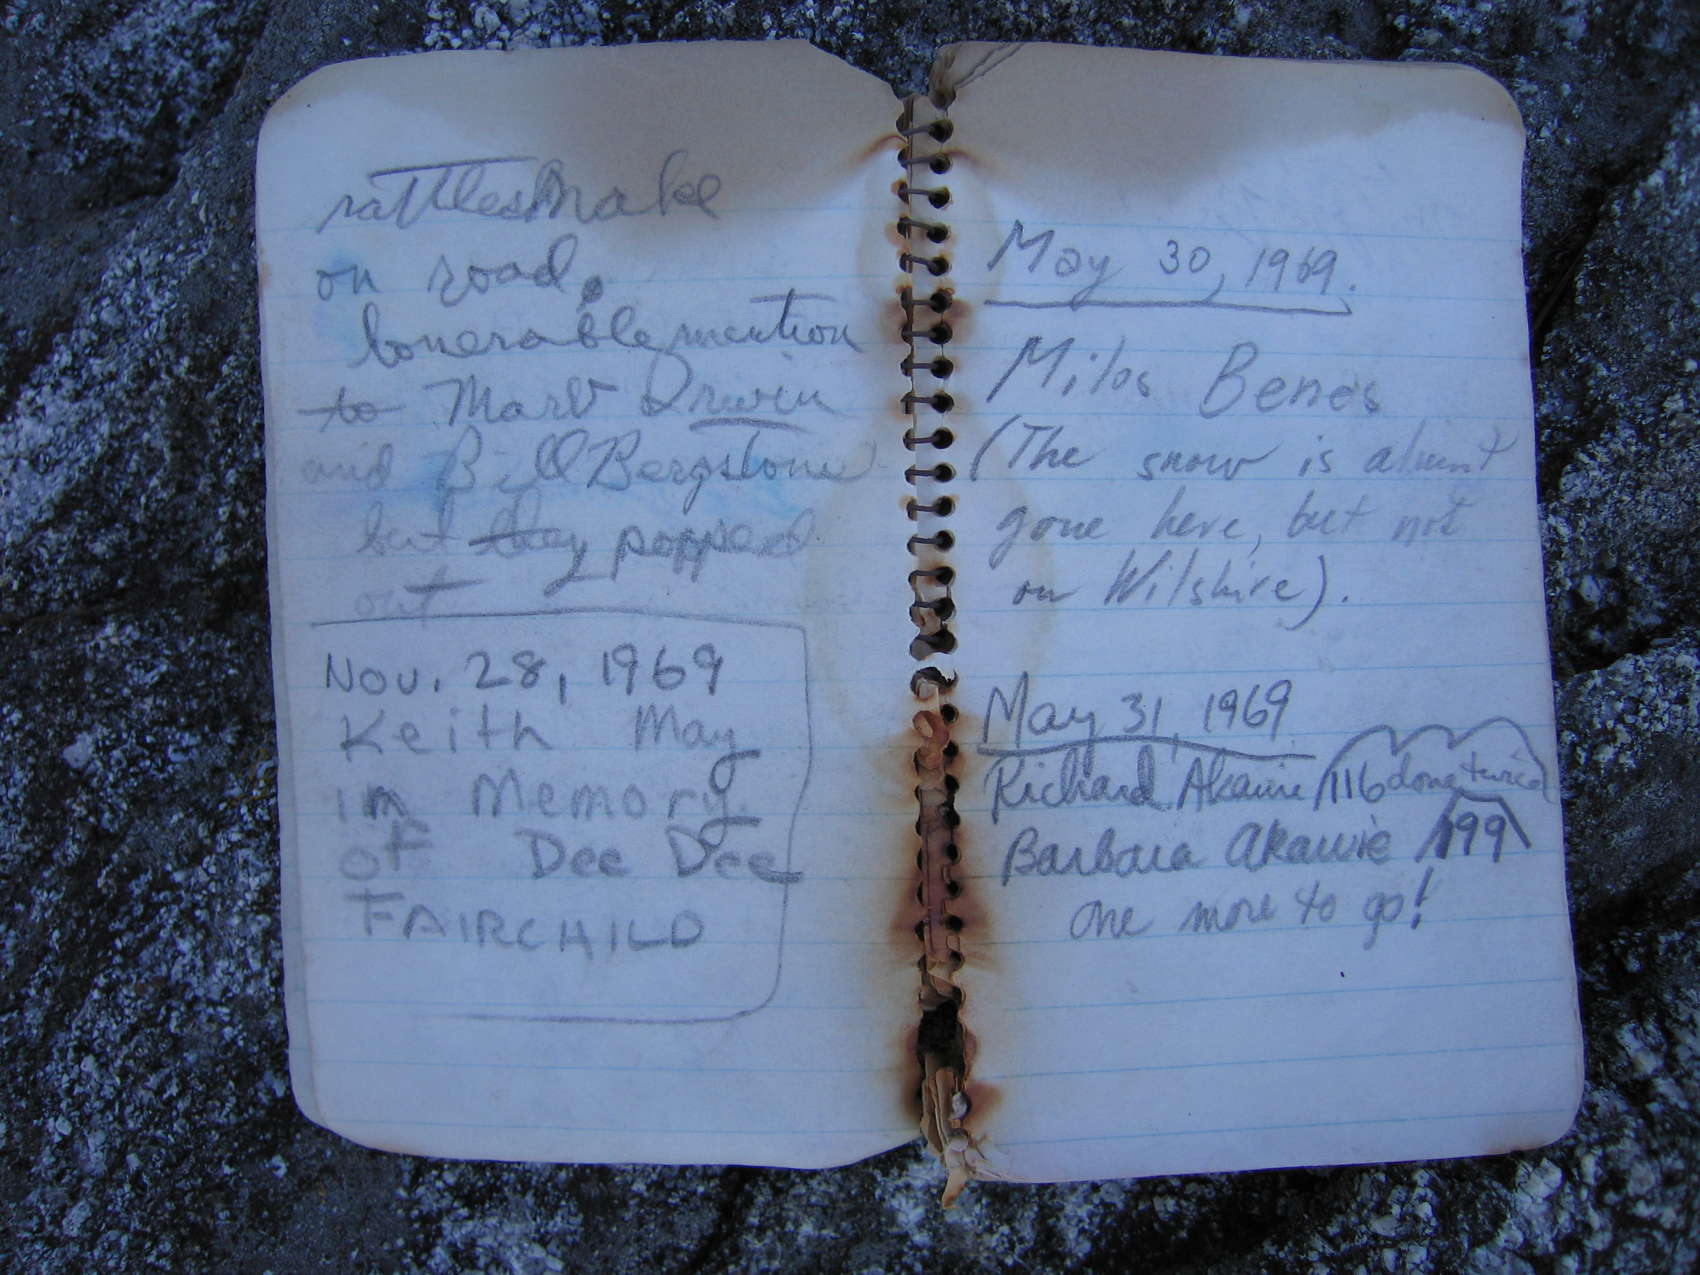 rattlesnake
on road.
honerable mention
to Marv Irwin
and Bill Bergstone
but they popped
out
Nov. 28, 1969
Keith May
in Memory
of Dee Dee
FAIRCHILD
May 30, 1969.
Milos Benes
(The snow is almost
gone here, but not
on Wilshire).
May 31, 1969
Richard Akawie /116 done twice
Barbara Akawie /199
one more to go!